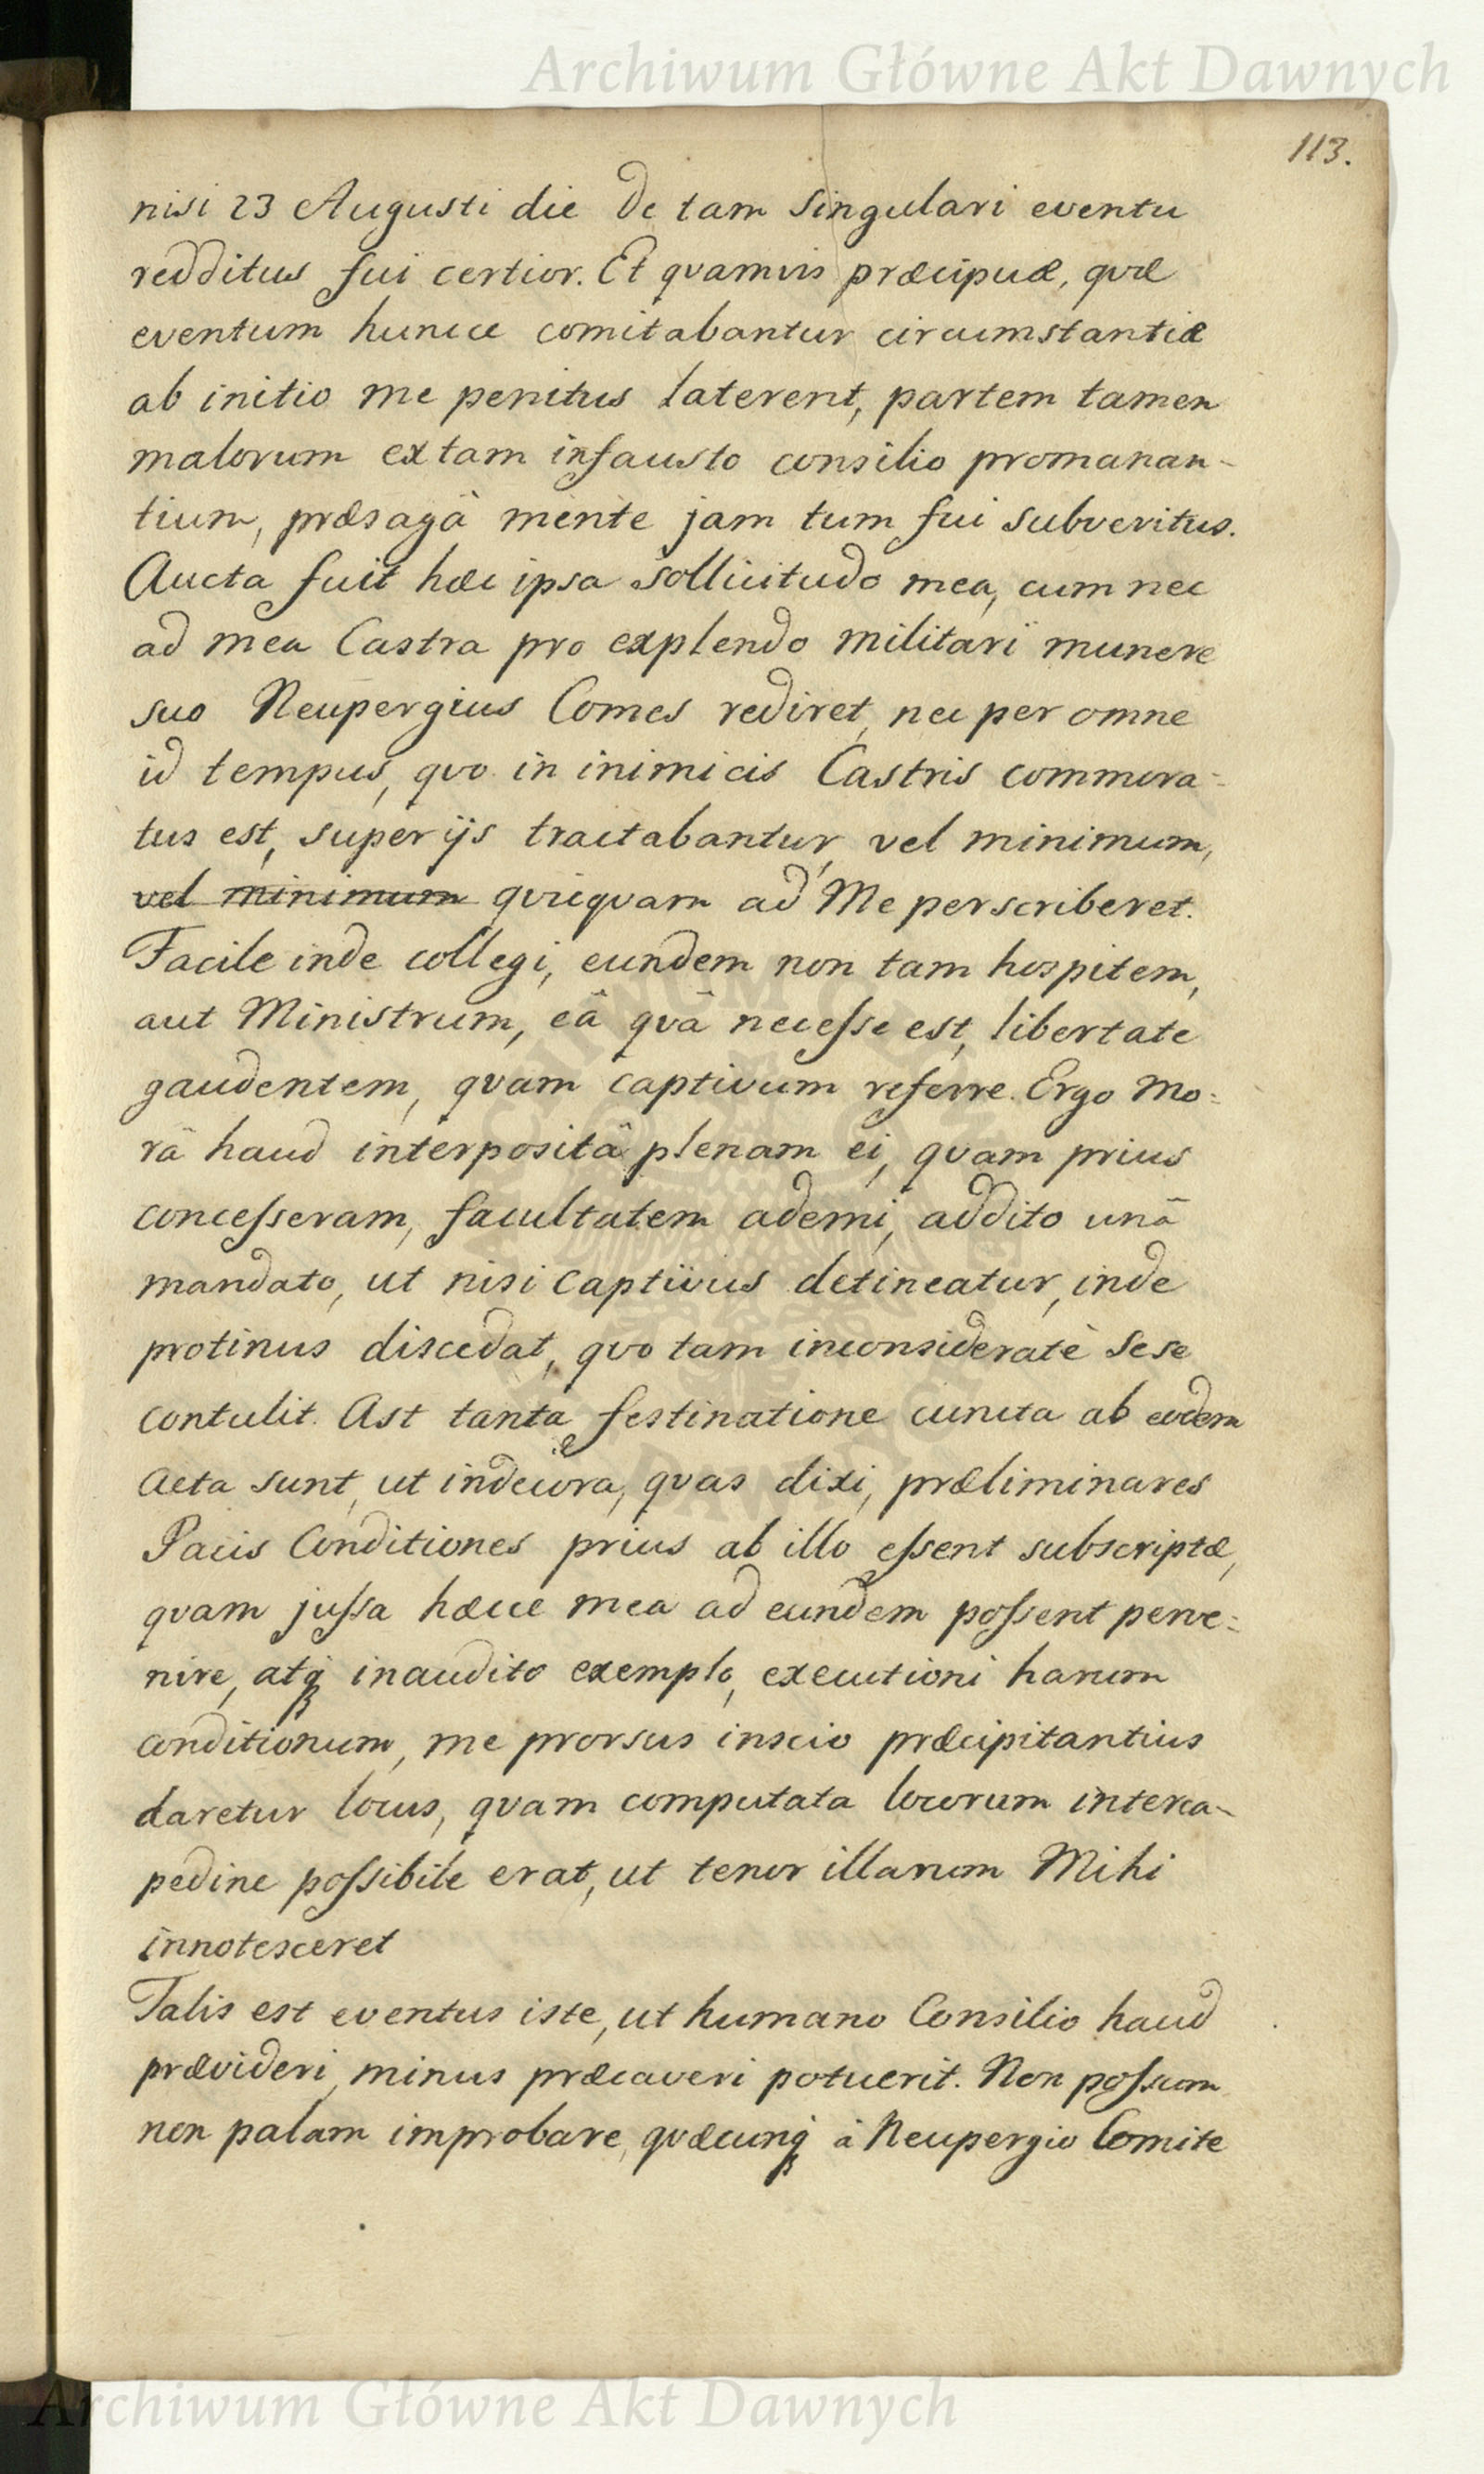 Archiwum Główne Akt Dawnych
113.
nisi 23 Augusti die de tam singulari eventu
redditus fui certior. Et qvamvis præcipuæ, qvæ
eventum hunce comitabantur circumstantiæ
ab initio me penitus laterent, partem tamen
malorum ex tam infausto consilio promanan-
tium, præsagâ mente jam tum fui subveritus.
Aucta fuit hæc ipsa sollicitudo mea, cum nec
ad mea Castra pro explendo militari munere
suo Neupergius Comes rediret, nec per omne
id tempus, qvo in inimicis Castris commora-
tus est, super ijs tractabantur, vel minimum,
vel minimum qvicqvam ad Me perscriberet.
Facile inde collegi, eundem non tam hospitem,
aut Ministrum, eâ qvâ necesse est, libertate
gaudentem, qvam captivum referre. Ergo mo-
râ haud interpositâ plenam ei, qvam prius
concesseram, facultatem ademi, addito unâ
mandato, ut nisi captivus detineatur, inde
protinus discedat, qvo tam inconsideratè sese
contulit. Ast tanta festinatione cuncta ab eodem
acta sunt, ut indecoræ, qvas dixi, præliminares
Pacis Conditiones prius ab illo essent subscriptæ,
qvam jussa hæcce mea ad eundem possent perve-
nire, atq; inaudito exemplo, executioni harum
conditionum, me prorsus inscio præcipitantius
daretur locus, qvam computata locorum interca-
pedine possibile erat, ut tenor illarum Mihi
innotesceret
Talis est eventus iste, ut humano Consilio haud
prævideri, minus præcaveri potuerit. Non possum
non palam improbare, qvæcunq; à Neupergio Comite
Archiwum Główne Akt Dawnych